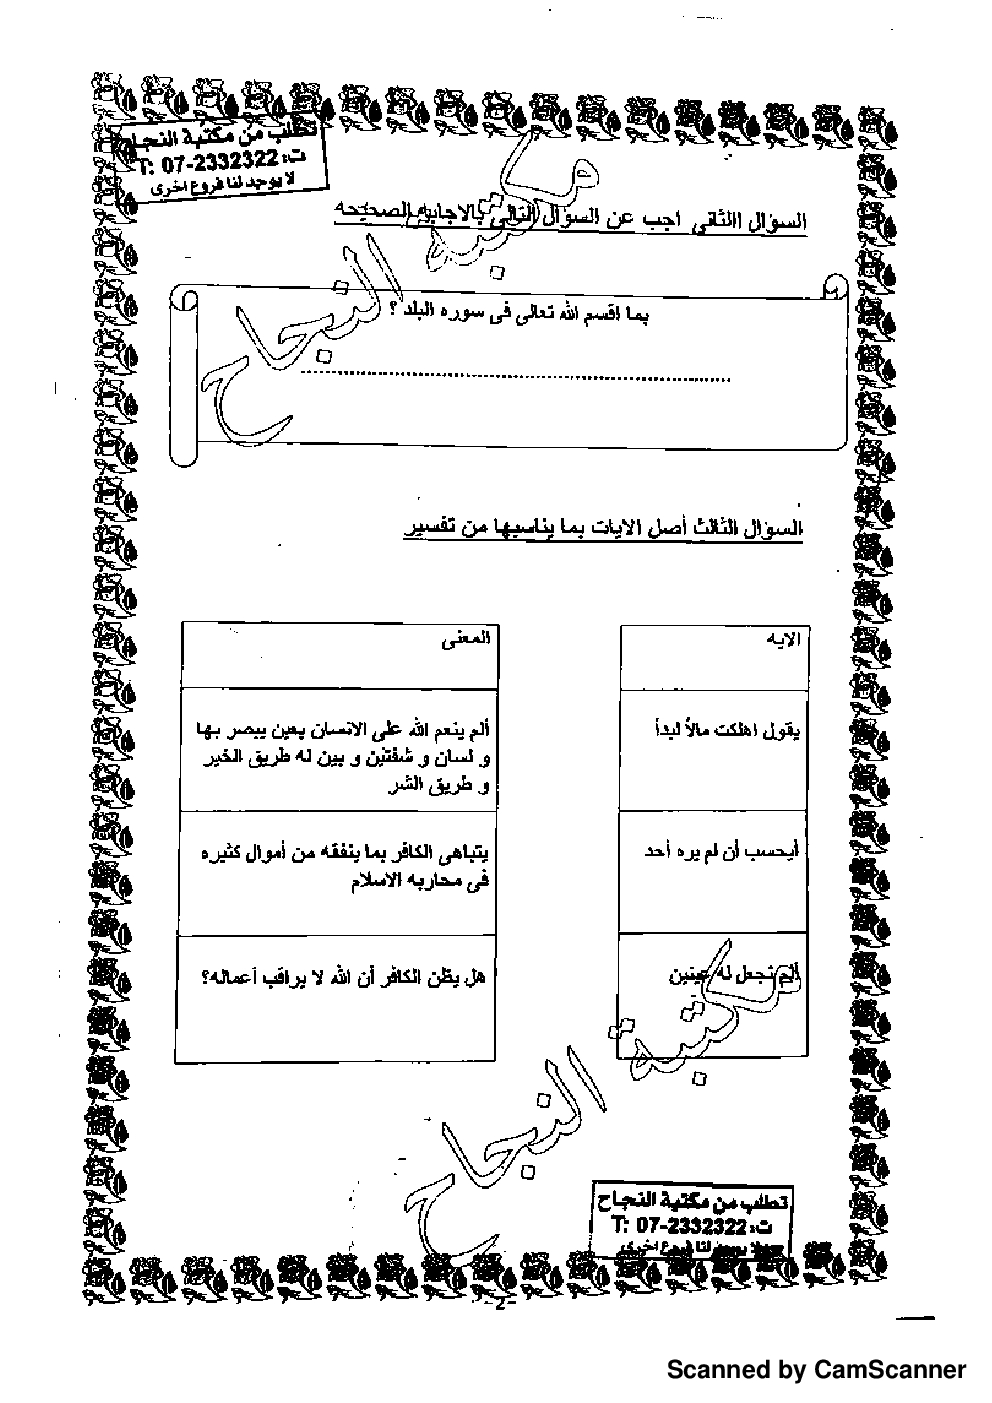 تطلب من مكتبة النجاح
ت: T: 07-2332322
لا يوجد لنا فروع اخرى
السؤال الثانى اجب عن السؤال التالى بالاجابه الصحيحه
مكتبة النجاح
بما اقسم الله تعالى فى سوره البلد ؟
السؤال الثالث أصل الايات بما يناسبها من تفسير
الايه
المعنى
يقول اهلكت مالاً لبدأ
ألم ينعم الله على الانسان بعين يبصر بها
و لسان و شفتين و بين له طريق الخير
و طريق الشر
أيحسب أن لم يره أحد
يتباهى الكافر بما ينفقه من أموال كثيره
فى محاربه الاسلام
ألم نجعل له عينين
هل يظن الكافر أن الله لا يراقب أعماله؟
مكتبة النجاح
تطلب من مكتبة النجاح
ت: T: 07-2332322
لا يوجد لنا فروع اخرى
-2-
Scanned by CamScanner